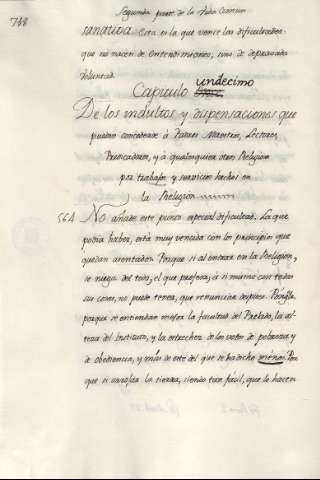 748
Segunda parte de la Vida Comun
sanativa esta es la que vence las dificultades
que no nacen de entendimiento, sino de depravada
Voluntad.
Capitulo undecimo
De los indultos y dispensaciones que
puedan concederse à Padres Maestros, Lectores,
Predicadores, y à qualquiera otro Religioso
por trabajos y servicios hechos en
la Religion
564 No añade este punto especial dificultad. La que
podia haber, está muy vencida con los principios que
quedan asentados. Porque si al entrar en la Religion,
se niega del todo, el que profesa, à si mismo con todas
sus cosas, no puede tener, que renuncia despues.
porque se entiendan mejor la facultad del Prelado, la al-
teza del Instituto, y la estrechez de los votos de pobreza y
de obediencia, y más de este del que se ha dicho menos. Por
que si la tierra, siendo tan fácil, que la hacen